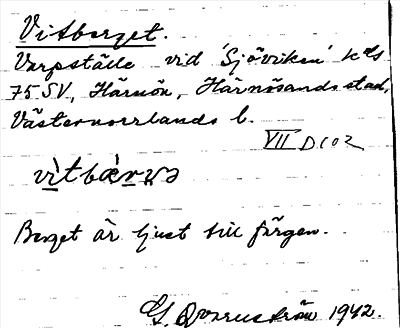 Vitberget.
Varpställe vid 'Sjöviken' kbl
75 SV, Härnön, Härnösands stad,
Västernorrlands l.
VII D102
vìtbær̀və
Berget är ljust till färgen.
1942.